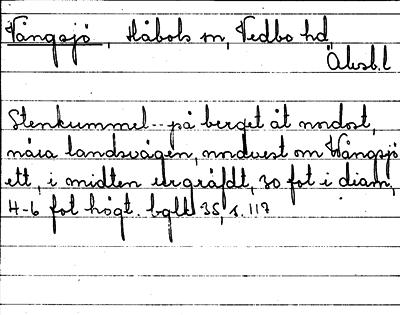 Vångsjö, Håbols sn, Vedbo hd
Älvsb.l
Stenkummel -- på berget åt nordost,
nära landsvägen, nordvest om Wångsjö
ett, i midten urgräfdt, 30 fot i diam,
4-6 fot högt. bglk 35, s. 117